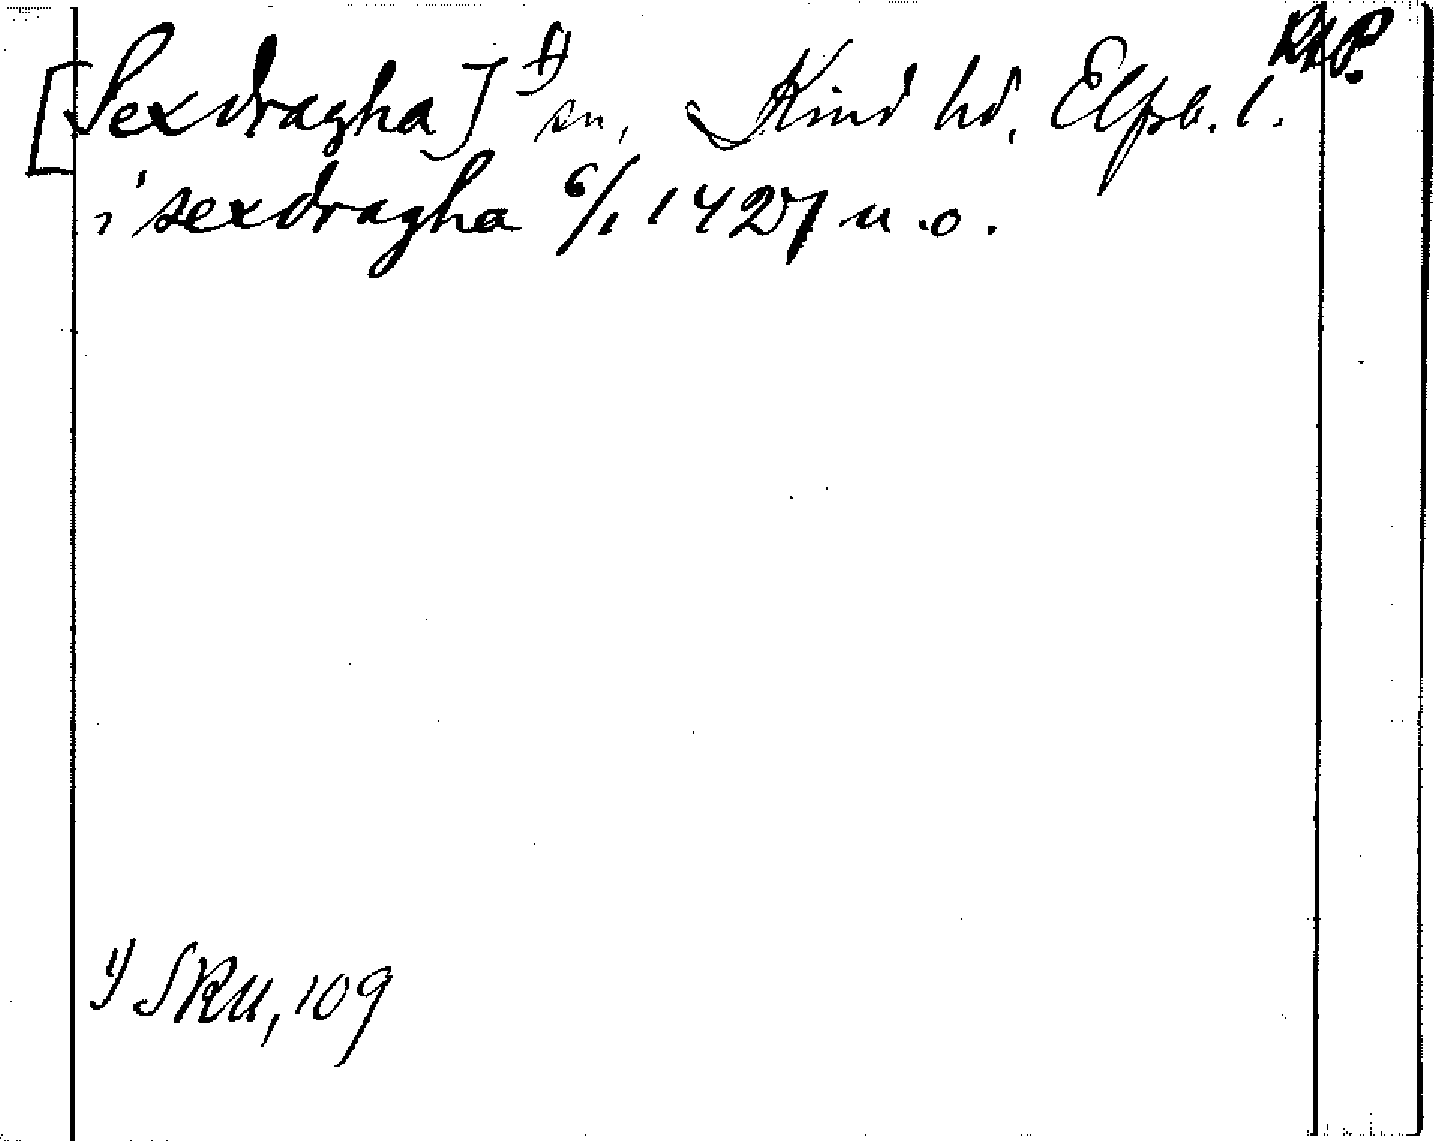 RAP.
[Sexdragha] 1) sn, Kind hd, Elfsb. l.
i sexdragha 6/1 1427 u.o.
1) SRU, 109